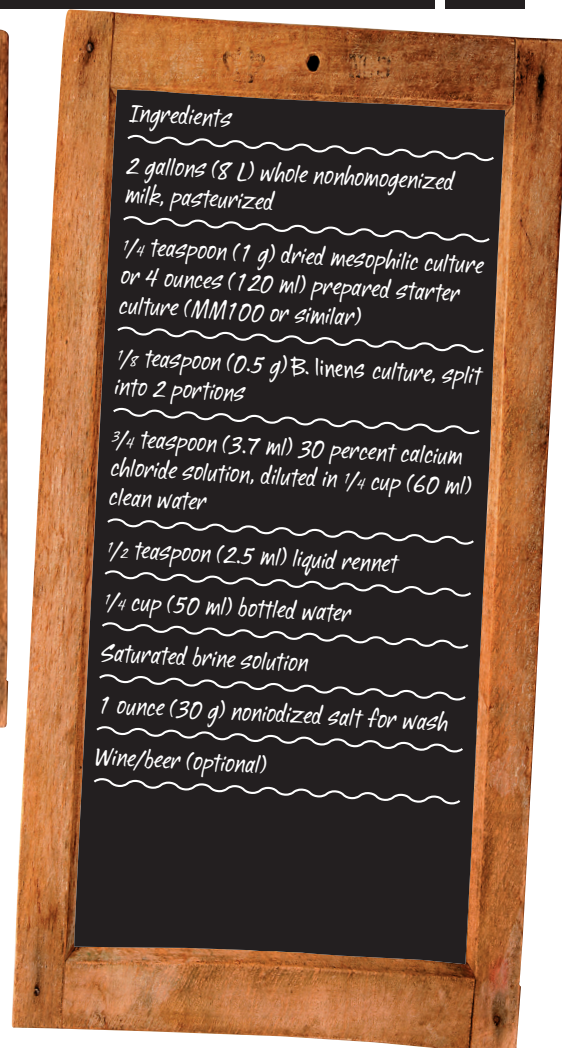 Ingredients
2 gallons (8 L) whole nonhomogenized
milk, pasteurized
1/4 teaspoon (1 g) dried mesophilic culture
or 4 ounces (120 ml) prepared starter
culture (MM100 or similar)
1/8 teaspoon (0.5 g) B. linens culture, split
into 2 portions
3/4 teaspoon (3.7 ml) 30 percent calcium
chloride solution, diluted in 1/4 cup (60 ml)
clean water
1/2 teaspoon (2.5 ml) liquid rennet
1/4 cup (50 ml) bottled water
Saturated brine solution
1 ounce (30 g) noniodized salt for wash
Wine/beer (optional)